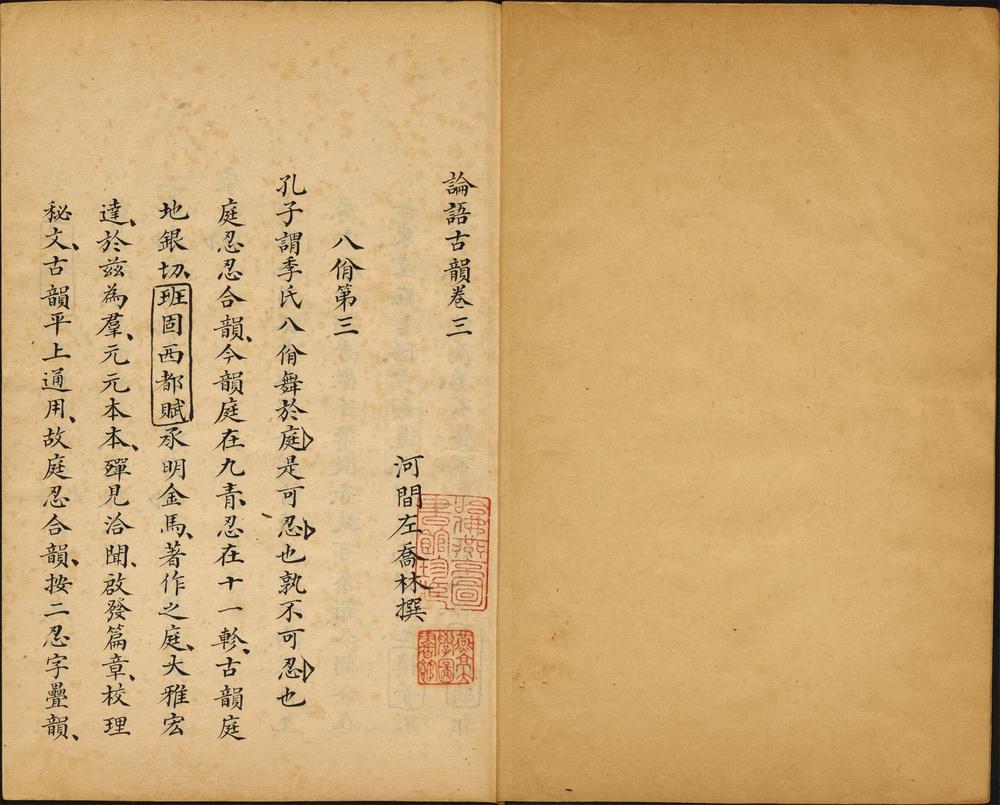 論語古韻卷三
河間左喬林撰
八佾第三
孔子謂季氏八佾舞於庭是可忍也孰不可忍也
庭忍忍合韻、今韻庭在九青、忍在十一軫、古韻庭
地銀切、班固西都賦承明金馬、著作之庭、大雅宏
達、於茲為羣、元元本本、殫見洽聞、啟發篇章、校理
秘文、古韻平上通用、故庭忍合韻、按二忍字疊韻、
哈佛燕京圖書館珍臧
燕京大學圖書館